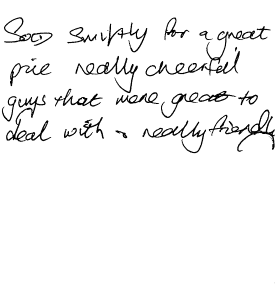 Sold swiftly for a great
price really cheerful
guys that were great to
deal with & really friendly